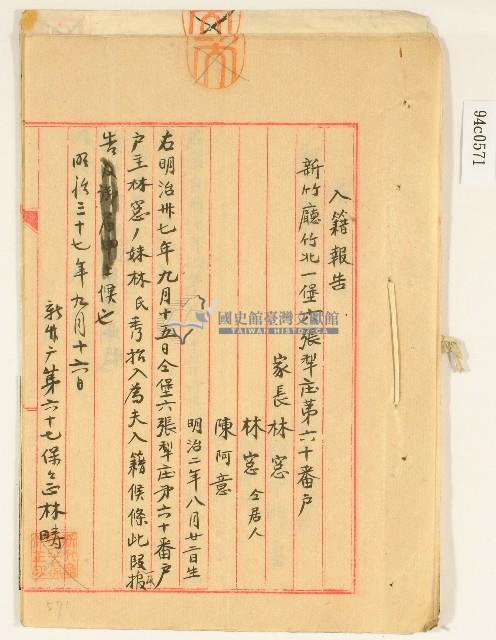 入籍報告
新竹廳竹北一堡六張犁庄第六十番戶
家長林窓
林窓仝居人
陳阿意
明治二年八月廿二日生
右明治卅七年九月十五日仝堡六張犁庄第六十番戶
戶主林窓ノ妹林氏秀招入為夫入籍候條此段報
告候也
明治三十七年九月十六日
新竹廳第六十七保保正林時
國史館臺灣文獻館
TAIWAN HISTORICA
94c0571
571